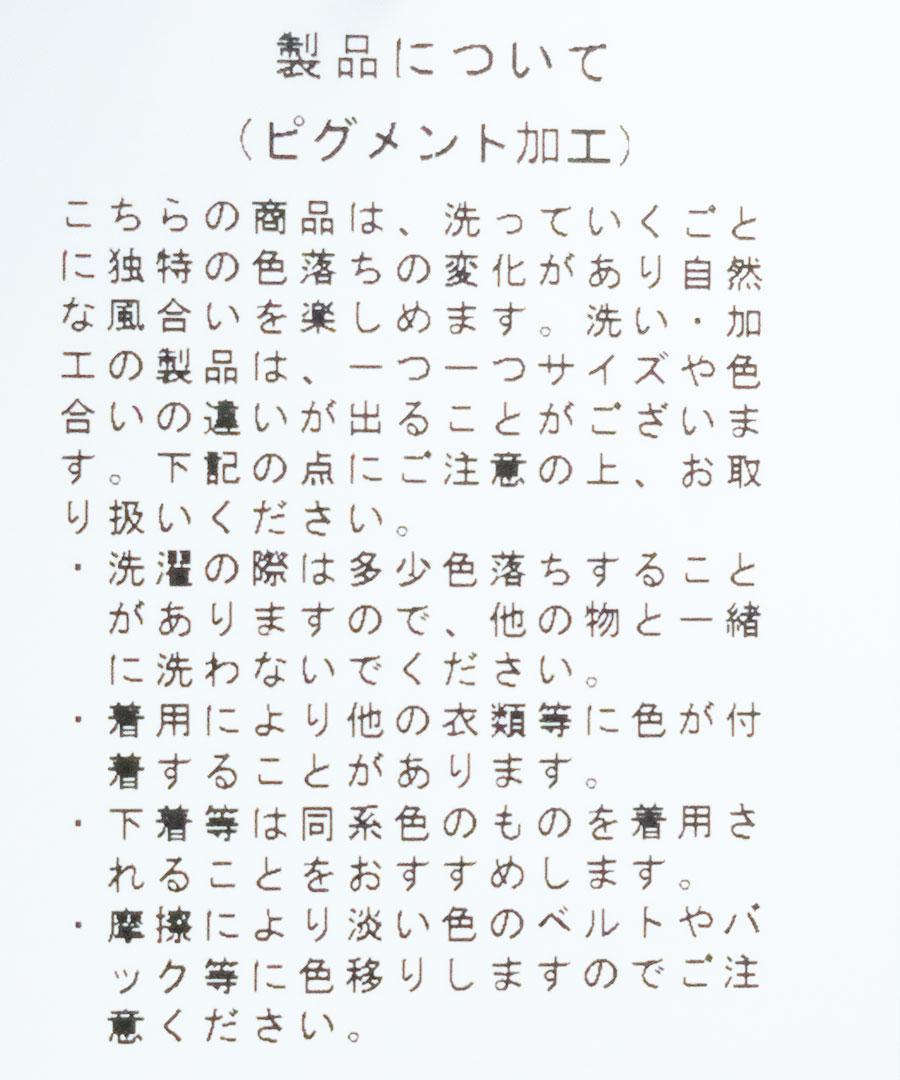 製品について
（ピグメント加工）
こちらの商品は、洗っていくごと
に独特の色落ちの変化があり自然
な風合いを楽しめます。洗い・加
工の製品は、一つ一つサイズや色
合いの違いが出ることがございま
す。下記の点にご注意の上、お取
り扱いください。
・洗濯の際は多少色落ちすること
がありますので、他の物と一緒
に洗わないでください。
・着用により他の衣類等に色が付
着することがあります。
・下着等は同系色のものを着用さ
れることをおすすめします。
・摩擦により淡い色のベルトやバ
ック等に色移りしますのでご注
意ください。